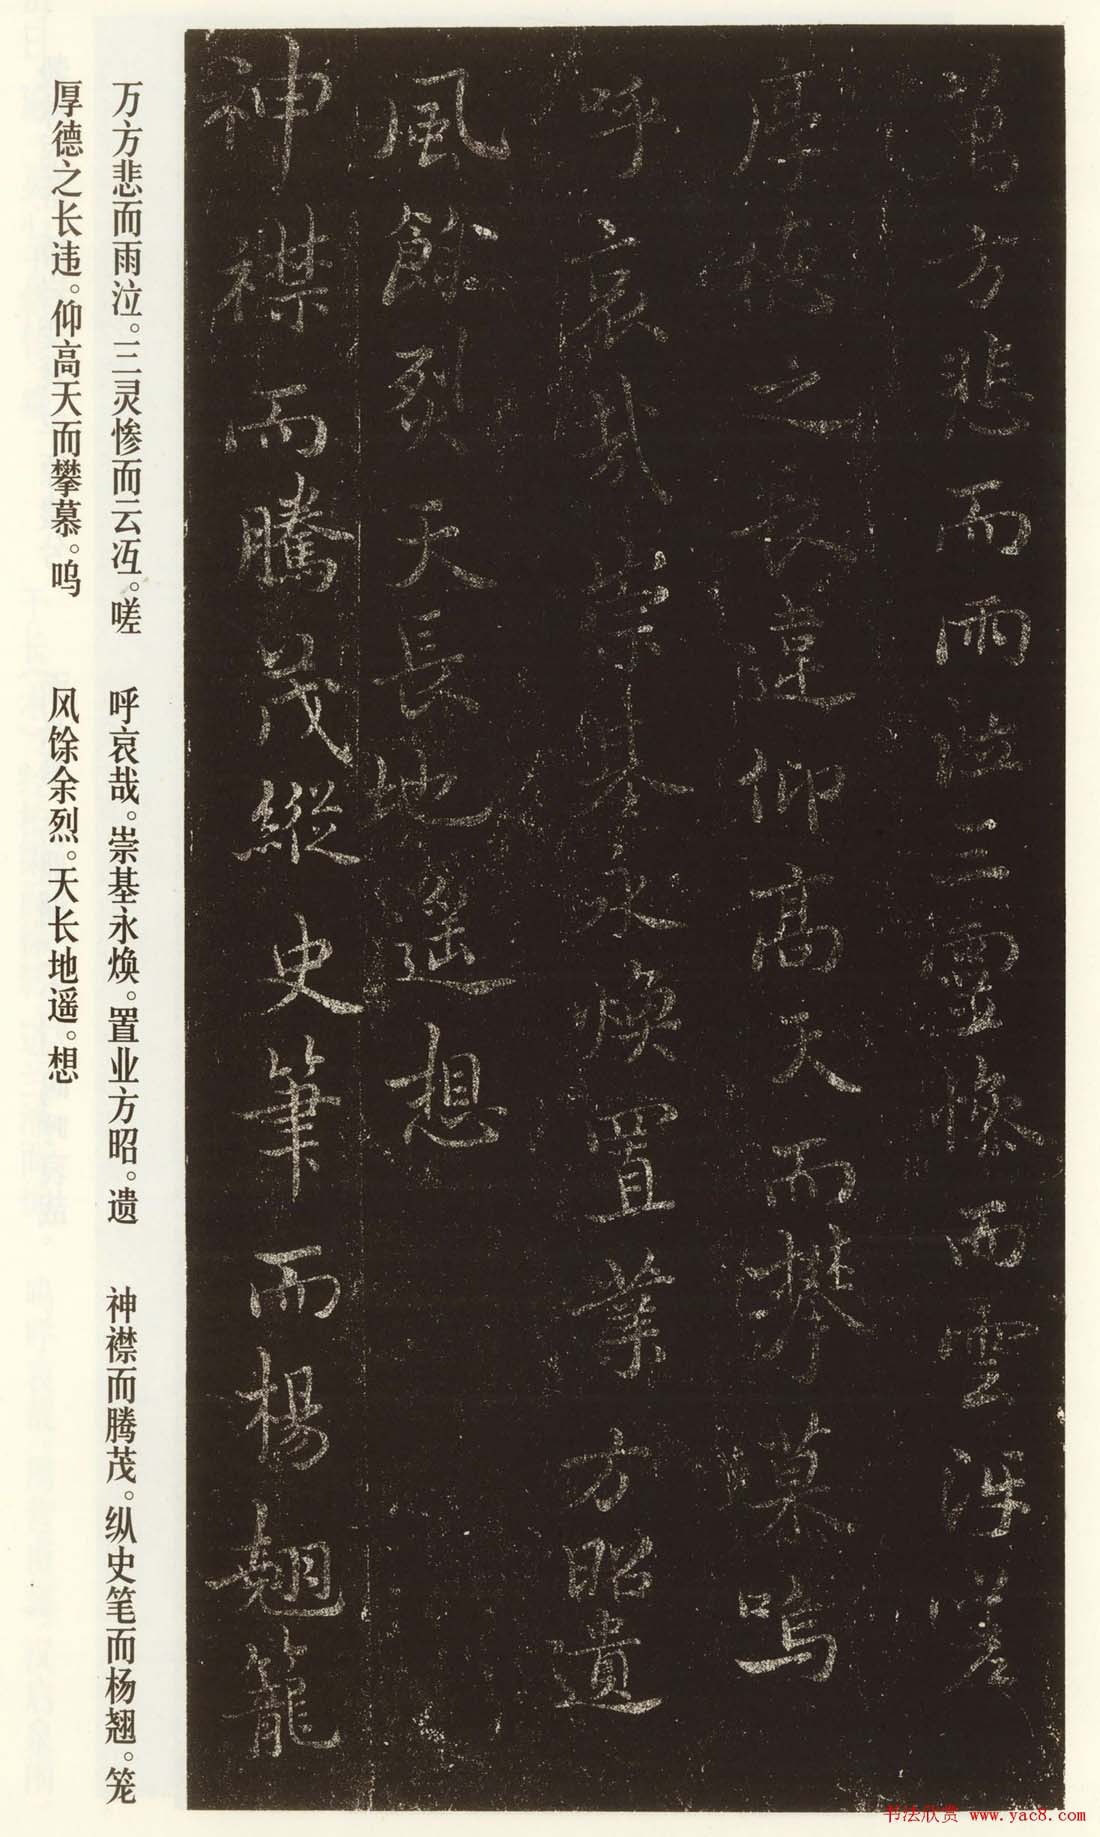 萬方悲而雨泣三靈惨而雲冱嗟
厚德之長違仰高天而攀慕嗚
呼哀哉崇基永煥置業方昭遺
風餘烈天長地遥想
神襟而騰茂縱史筆而楊翹籠
万方悲而雨泣。三灵惨而云冱。嗟
厚德之长违。仰高天而攀慕。呜
呼哀哉。崇基永焕。置业方昭。遗
风馀余烈。天长地遥。想
神襟而腾茂。纵史笔而杨翘。笼
书法欣赏 www.yac8.com